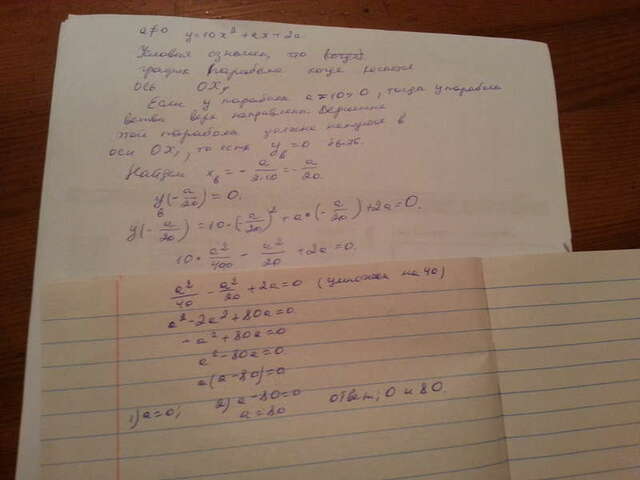 a≠0 y=10x²+ax+2a
Условия означает, что
график парабола когда касается
ось OX,
Если у парабола a=10>0, тогда у парабола
ветви верх направлены. Вершина
этой парабола должна находится в
оси OX, то есть y_в=0
Найдем x_в = -a/2·10 = -a/20.
y_в(-a/20)=0.
y(-a/20)=10·(-a/20)²+a·(-a/20)+2a=0.
10·a²/400 - a²/20 + 2a=0.
a²/40 - a²/20 + 2a=0 (умножим на 40)
a²-2a²+80a=0
-a²+80a=0
a²-80a=0
a(a-80)=0
1) a=0; 2) a-80=0 ответ; 0 и 80.
a=80